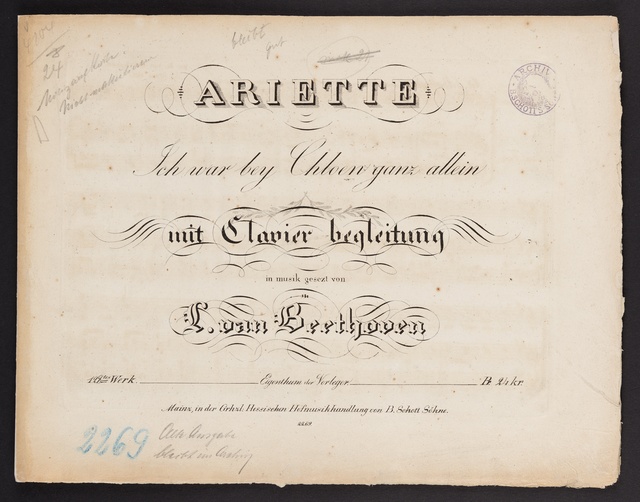 24
bleibt
gut
ARCHIV
ARIETTE
Ich war bey Chloen ganz allein
mit Clavier begleitung
in musik gesezt von
L. van Beethoven
Werk. Eigenthum der Verleger. 24 kr.
Mainz, in der Grhzl. Hessischen Hofmusikhandlung von B. Schott Söhne.
2269
2269 Alte Ausgabe
bleibt im Katalog